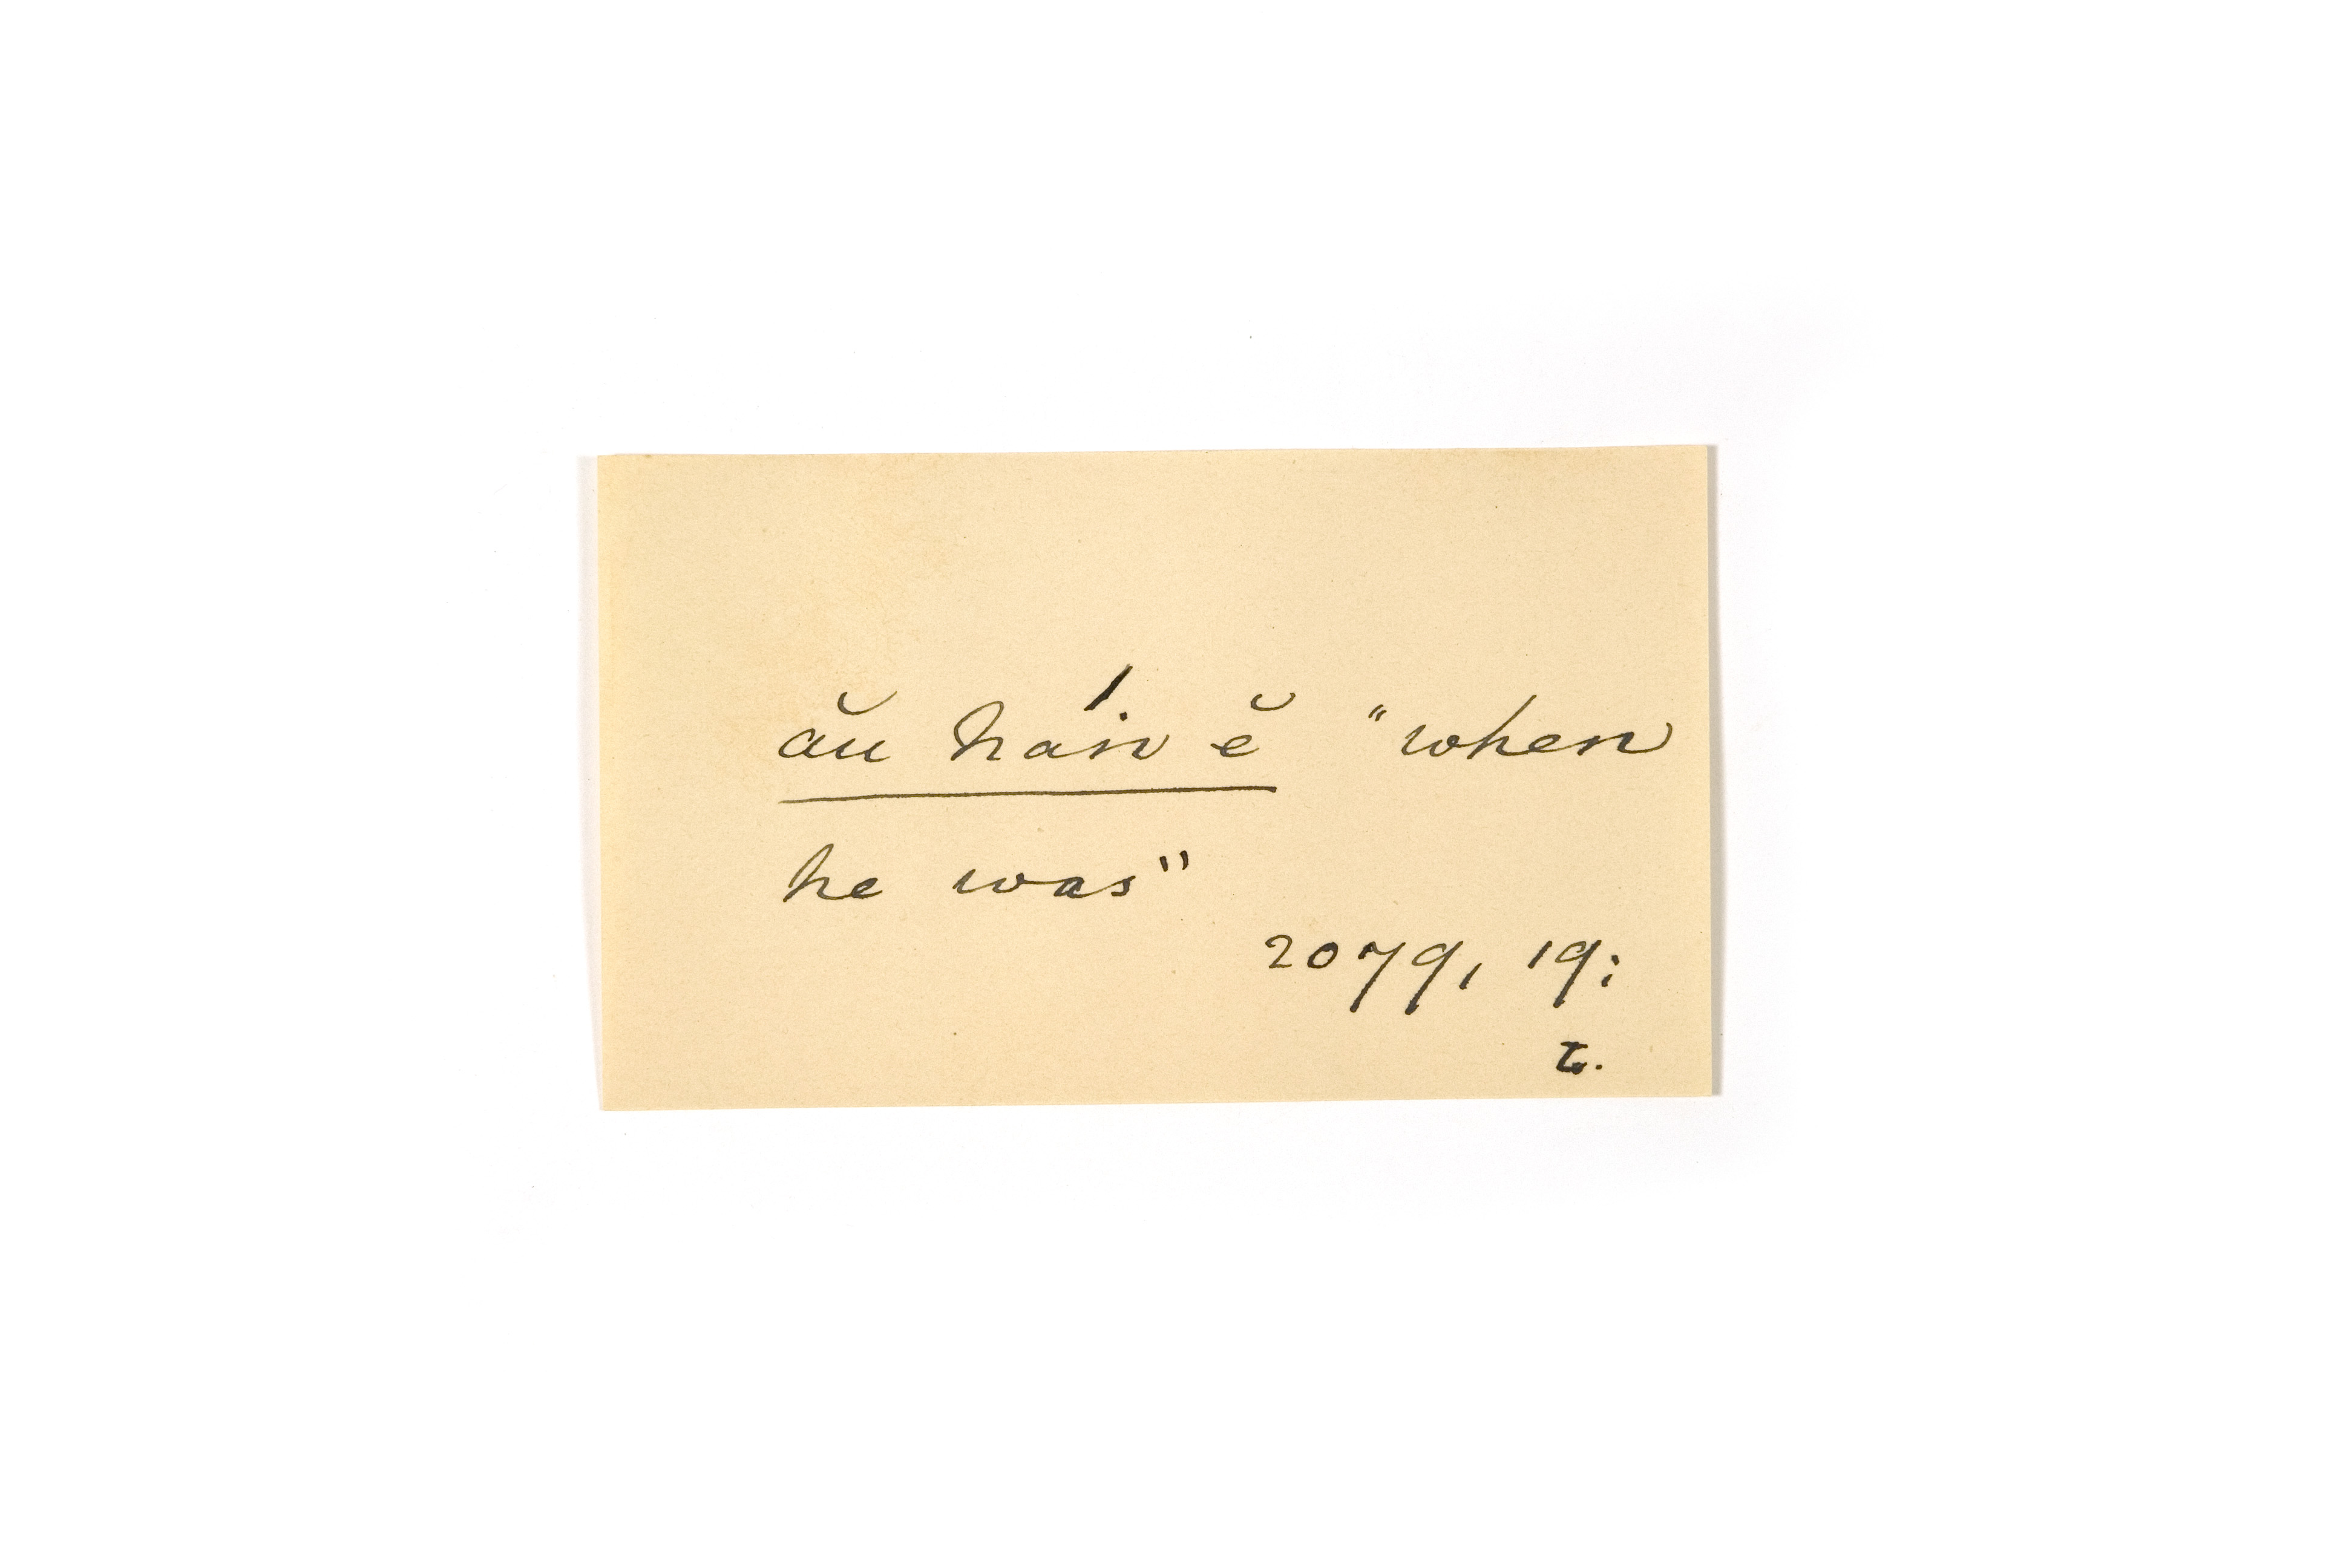 ău háiv ĕ "when
he was"
2079, 19;
t.